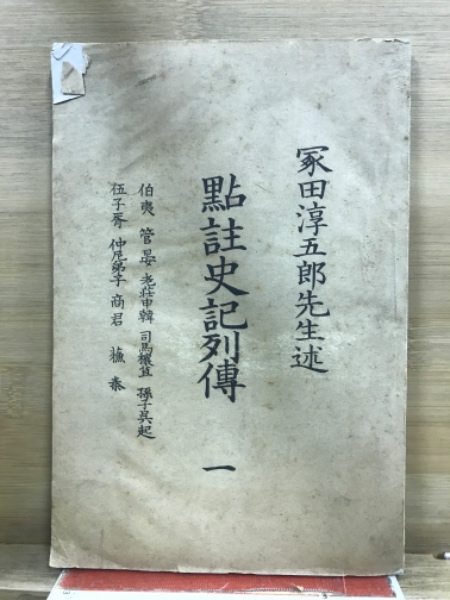 冢田淳五郎先生述
點註史記列傳 一
伯夷 管晏 老莊申韓 司馬穰苴 孫子呉起
伍子胥 仲尼弟子 商君 蘓秦